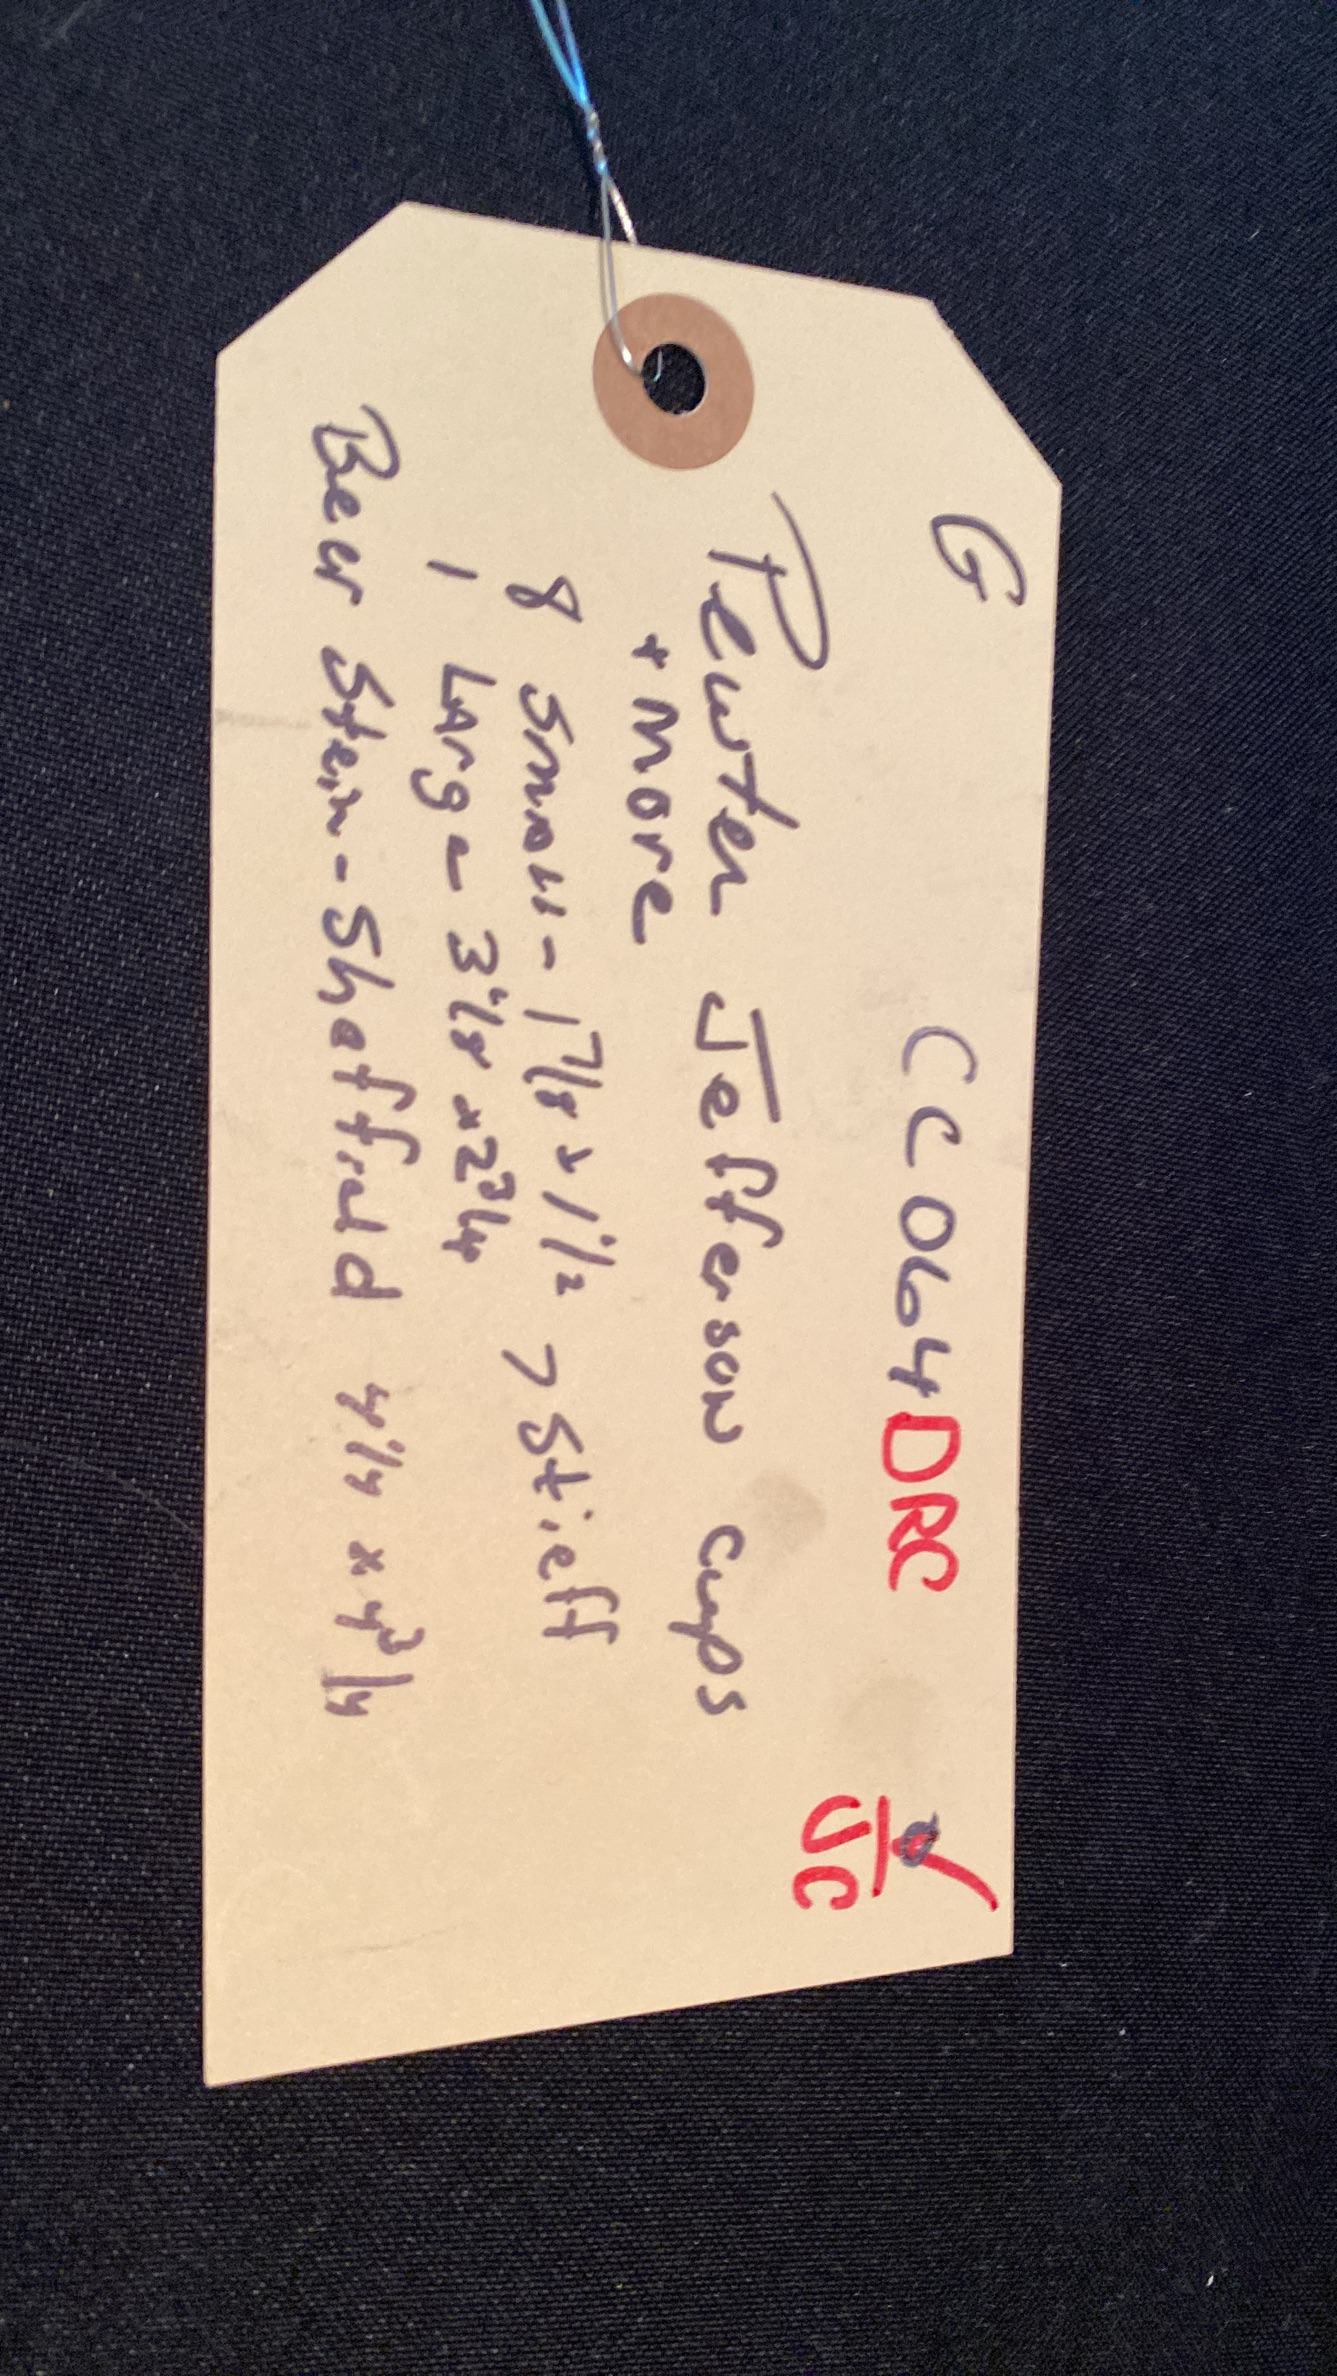 G CC064DRC
UC
Pewter Jefferson cups
+ more
8 Small - 1 7/8 x 1 1/2 > Stieff
1 Large 3 1/8 x 2 3/4
Beer Stein - Sheffield 4 1/4 x 4 3/4